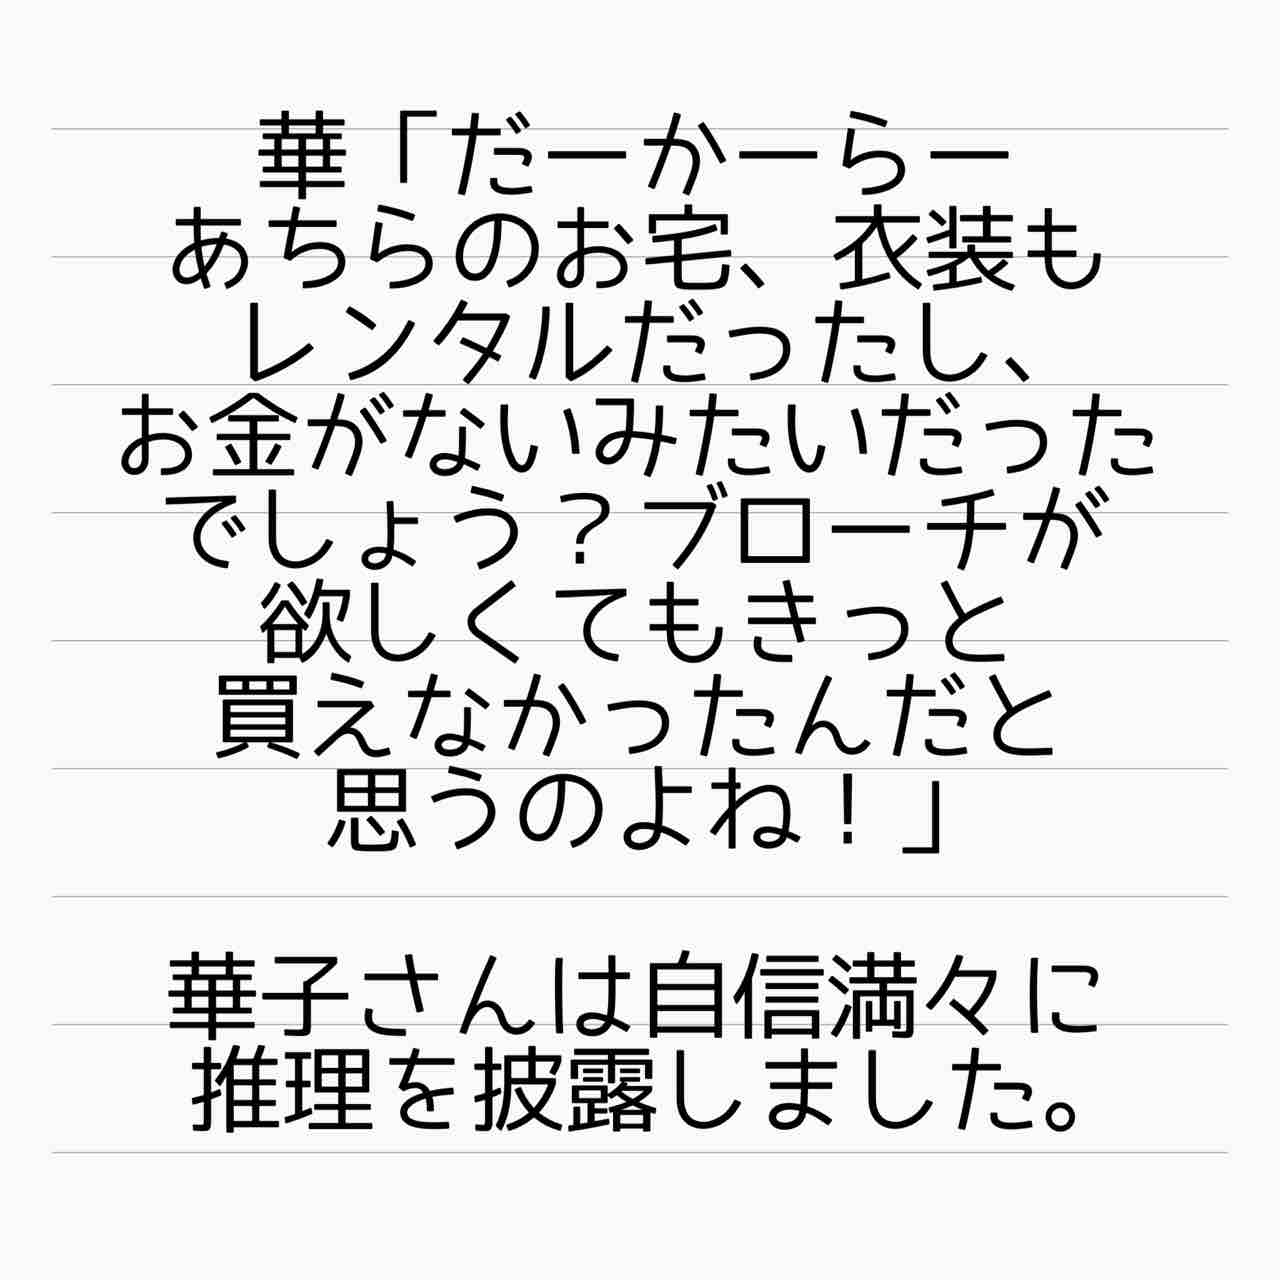 華「だーかーらー
あちらのお宅、衣装も
レンタルだったし、
お金がないみたいだった
でしょう？ブローチが
欲しくてもきっと
買えなかったんだと
思うのよね！」
華子さんは自信満々に
推理を披露しました。